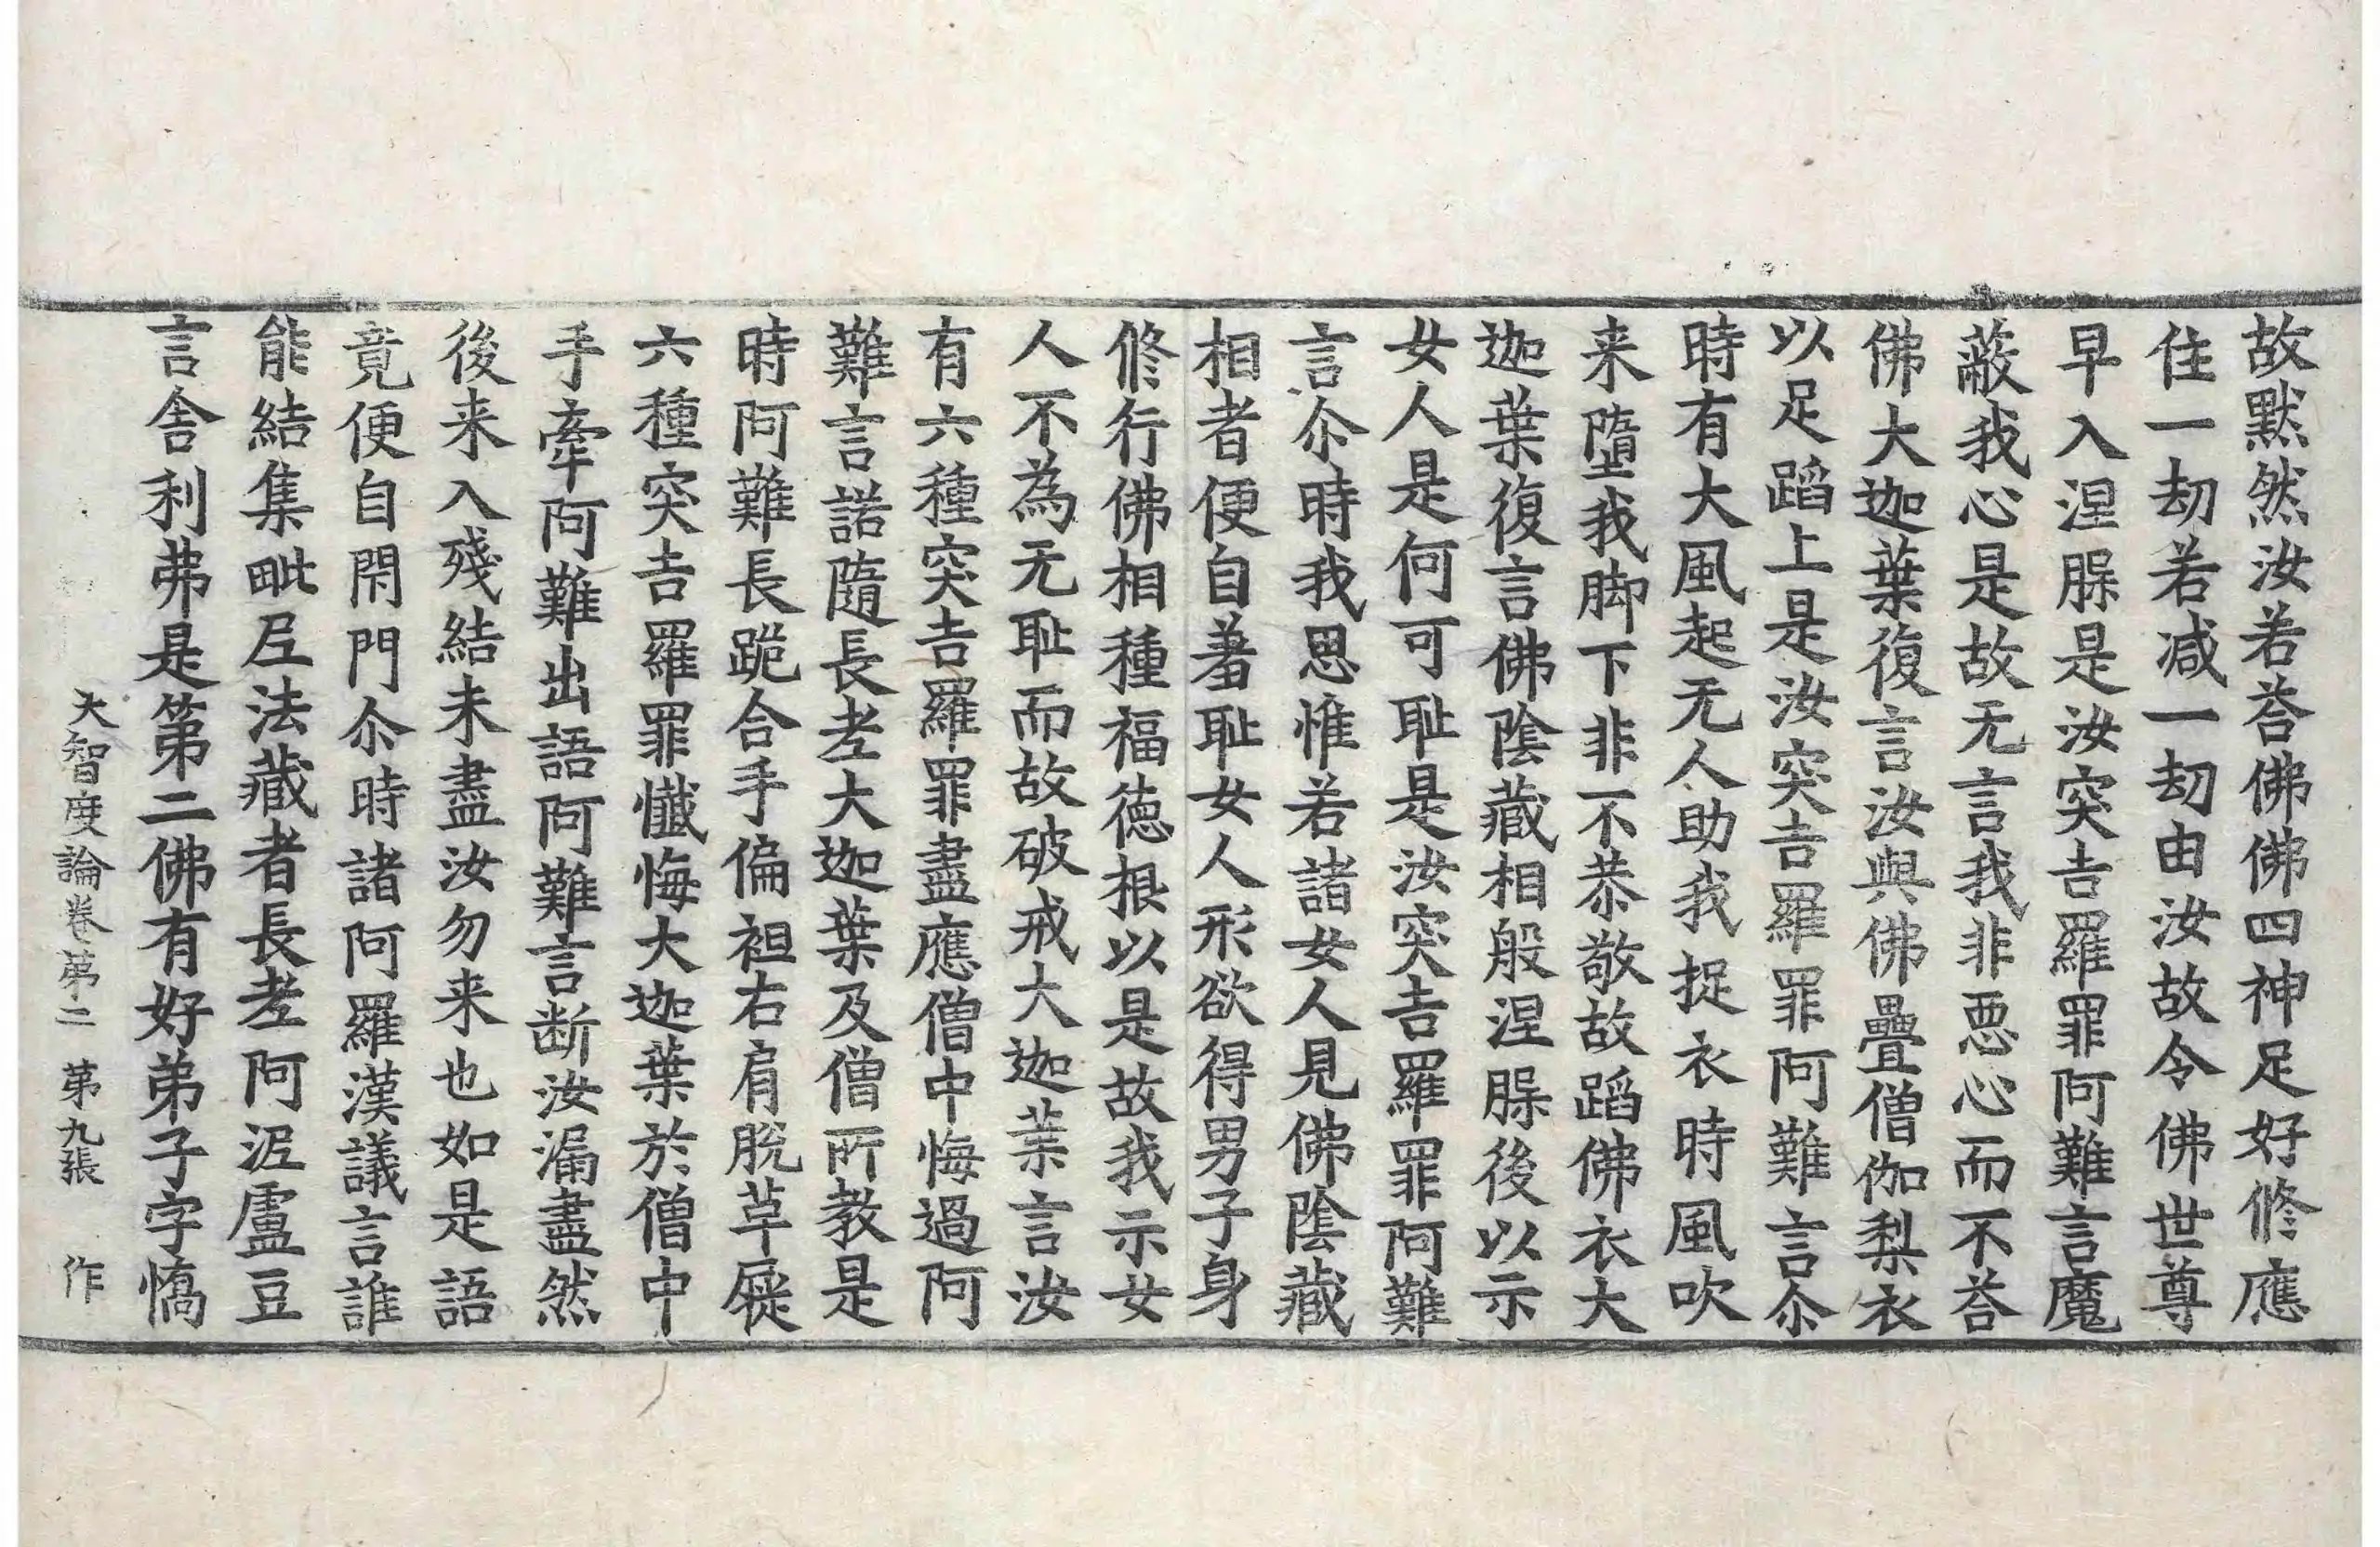 故默然汝若荅佛佛四神足好修應
住一劫若減一劫由汝故令佛世尊
早入涅䏶是汝突吉羅罪阿難言魔
蔽我心是故无言我非惡心而不荅
佛大迦葉復言汝與佛疊僧伽梨衣
以足蹈上是汝突吉羅罪阿難言尒
時有大風起无人助我捉衣時風吹
来墮我脚下非不恭敬故蹈佛衣大
迦葉復言佛陰藏相般涅䏶後以示
女人是何可耻是汝突吉羅罪阿難
言尒時我思惟若諸女人見佛陰藏
相者便自羞耻女人形欲得男子身
修行佛相種福德根以是故我示女
人不為无耻而故破戒大迦葉言汝
有六種突吉羅罪盡應僧中悔過阿
難言諾隨長老大迦葉及僧所教是
時阿難長跪合手偏袒右肩脫草屣
六種突吉羅罪懺悔大迦葉於僧中
手牽阿難出語阿難言断汝漏盡然
後来入殘結未盡汝勿来也如是語
竟便自閇門尒時諸阿羅漢議言誰
能結集毗尼法藏者長老阿泥盧豆
言舍利弗是第二佛有好弟子字憍
大智度論卷第二 第九張 作